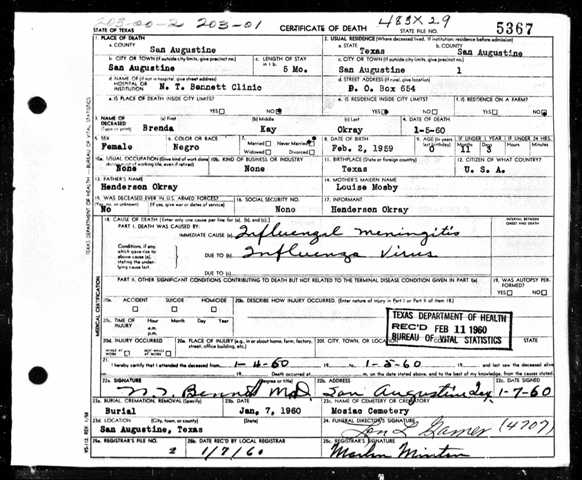 203-00-2 203-01 483X 29
STATE OF TEXAS CERTIFICATE OF DEATH STATE FILE NO. 5367
1. PLACE OF DEATH 2. USUAL RESIDENCE (Where deceased lived. If institution: residence before admission)
a. COUNTY San Augustine a. STATE Texas b. COUNTY San Augustine
b. CITY OR TOWN (If outside city limits, give precinct no.) c. LENGTH OF STAY in 1 b. c. CITY OR TOWN (If outside city limits, give precinct no.)
San Augustine 5 Mo. San Augustine 1
d. NAME OF (If not in hospital, give street address) HOSPITAL OR INSTITUTION N. T. Bennett Clinic d. STREET ADDRESS (If rural, give location) B. O. Box 654
e. IS PLACE OF DEATH INSIDE CITY LIMITS? YES NO e. IS RESIDENCE INSIDE CITY LIMITS? YES NO f. IS RESIDENCE ON A FARM? YES NO
3. NAME OF DECEASED (Type or print) (a) First Brenda (b) Middle Kay (c) Last Okray 4. DATE OF DEATH 1-5-60
5. SEX Female 6. COLOR OR RACE Negro 7. Married Never Married Widowed Divorced 8. DATE OF BIRTH Feb. 2, 1959 9. AGE (In years last birthday) 0 IF UNDER 1 YEAR 11 3 IF UNDER 24 HRS.
10a. USUAL OCCUPATION (Give kind of work done during most of working life, even if retired) None 10b. KIND OF BUSINESS OR INDUSTRY None 11. BIRTHPLACE (State or foreign country) Texas 12. CITIZEN OF WHAT COUNTRY? U. S. A.
13. FATHER'S NAME Henderson Okray 14. MOTHER'S MAIDEN NAME Louise Mosby
15. WAS DECEASED EVER IN U.S. ARMED FORCES? (Yes, no, or unknown) (If yes, give war or dates of service) No 16. SOCIAL SECURITY NO. None 17. INFORMANT Henderson Okray
18. CAUSE OF DEATH [Enter only one cause per line for (a), (b), and (c).] INTERVAL BETWEEN ONSET AND DEATH
PART I. DEATH WAS CAUSED BY: IMMEDIATE CAUSE (a) Influenzal meningitis
Conditions, if any, which gave rise to above cause (a), stating the underlying cause last. DUE TO (b) Influenza Virus
DUE TO (c)
PART II. OTHER SIGNIFICANT CONDITIONS CONTRIBUTING TO DEATH BUT NOT RELATED TO THE TERMINAL DISEASE CONDITION GIVEN IN PART I(a) 19. WAS AUTOPSY PERFORMED? YES NO
20a. ACCIDENT SUICIDE HOMICIDE 20b. DESCRIBE HOW INJURY OCCURRED. (Enter nature of injury in Part I or Part II of item 18.)
20c. TIME OF INJURY Hour Month Day Year a.m. p.m.
TEXAS DEPARTMENT OF HEALTH
REC'D FEB 11 1960
BUREAU OF VITAL STATISTICS
20d. INJURY OCCURRED WHILE AT WORK NOT WHILE AT WORK 20e. PLACE OF INJURY (e.g., in or about home, farm, factory, street, office building, etc.) 20f. CITY, TOWN, OR LOCATION
21. I hereby certify that I attended the deceased from 1-4-60 1-5-60 and last saw the deceased alive
Death occurred at m. on the date stated above, and to the best of my knowledge, from the causes stated.
22a. SIGNATURE N T Bennett MD 22b. ADDRESS San Augustine Tex 22c. DATE SIGNED 1-7-60
23a. BURIAL, CREMATION, REMOVAL (Specify) Burial 23b. DATE Jan. 7, 1960 23c. NAME OF CEMETERY OR CREMATORY Mosiac Cemetery
23d. LOCATION (City, town, or county) (State) San Augustine, Texas 24. FUNERAL DIRECTOR'S SIGNATURE (4707)
25a. REGISTRAR'S FILE NO. 2 25b. DATE REC'D BY LOCAL REGISTRAR 1/7/60 25c. REGISTRAR'S SIGNATURE
TEXAS DEPARTMENT OF HEALTH - BUREAU OF VITAL STATISTICS
MEDICAL CERTIFICATION